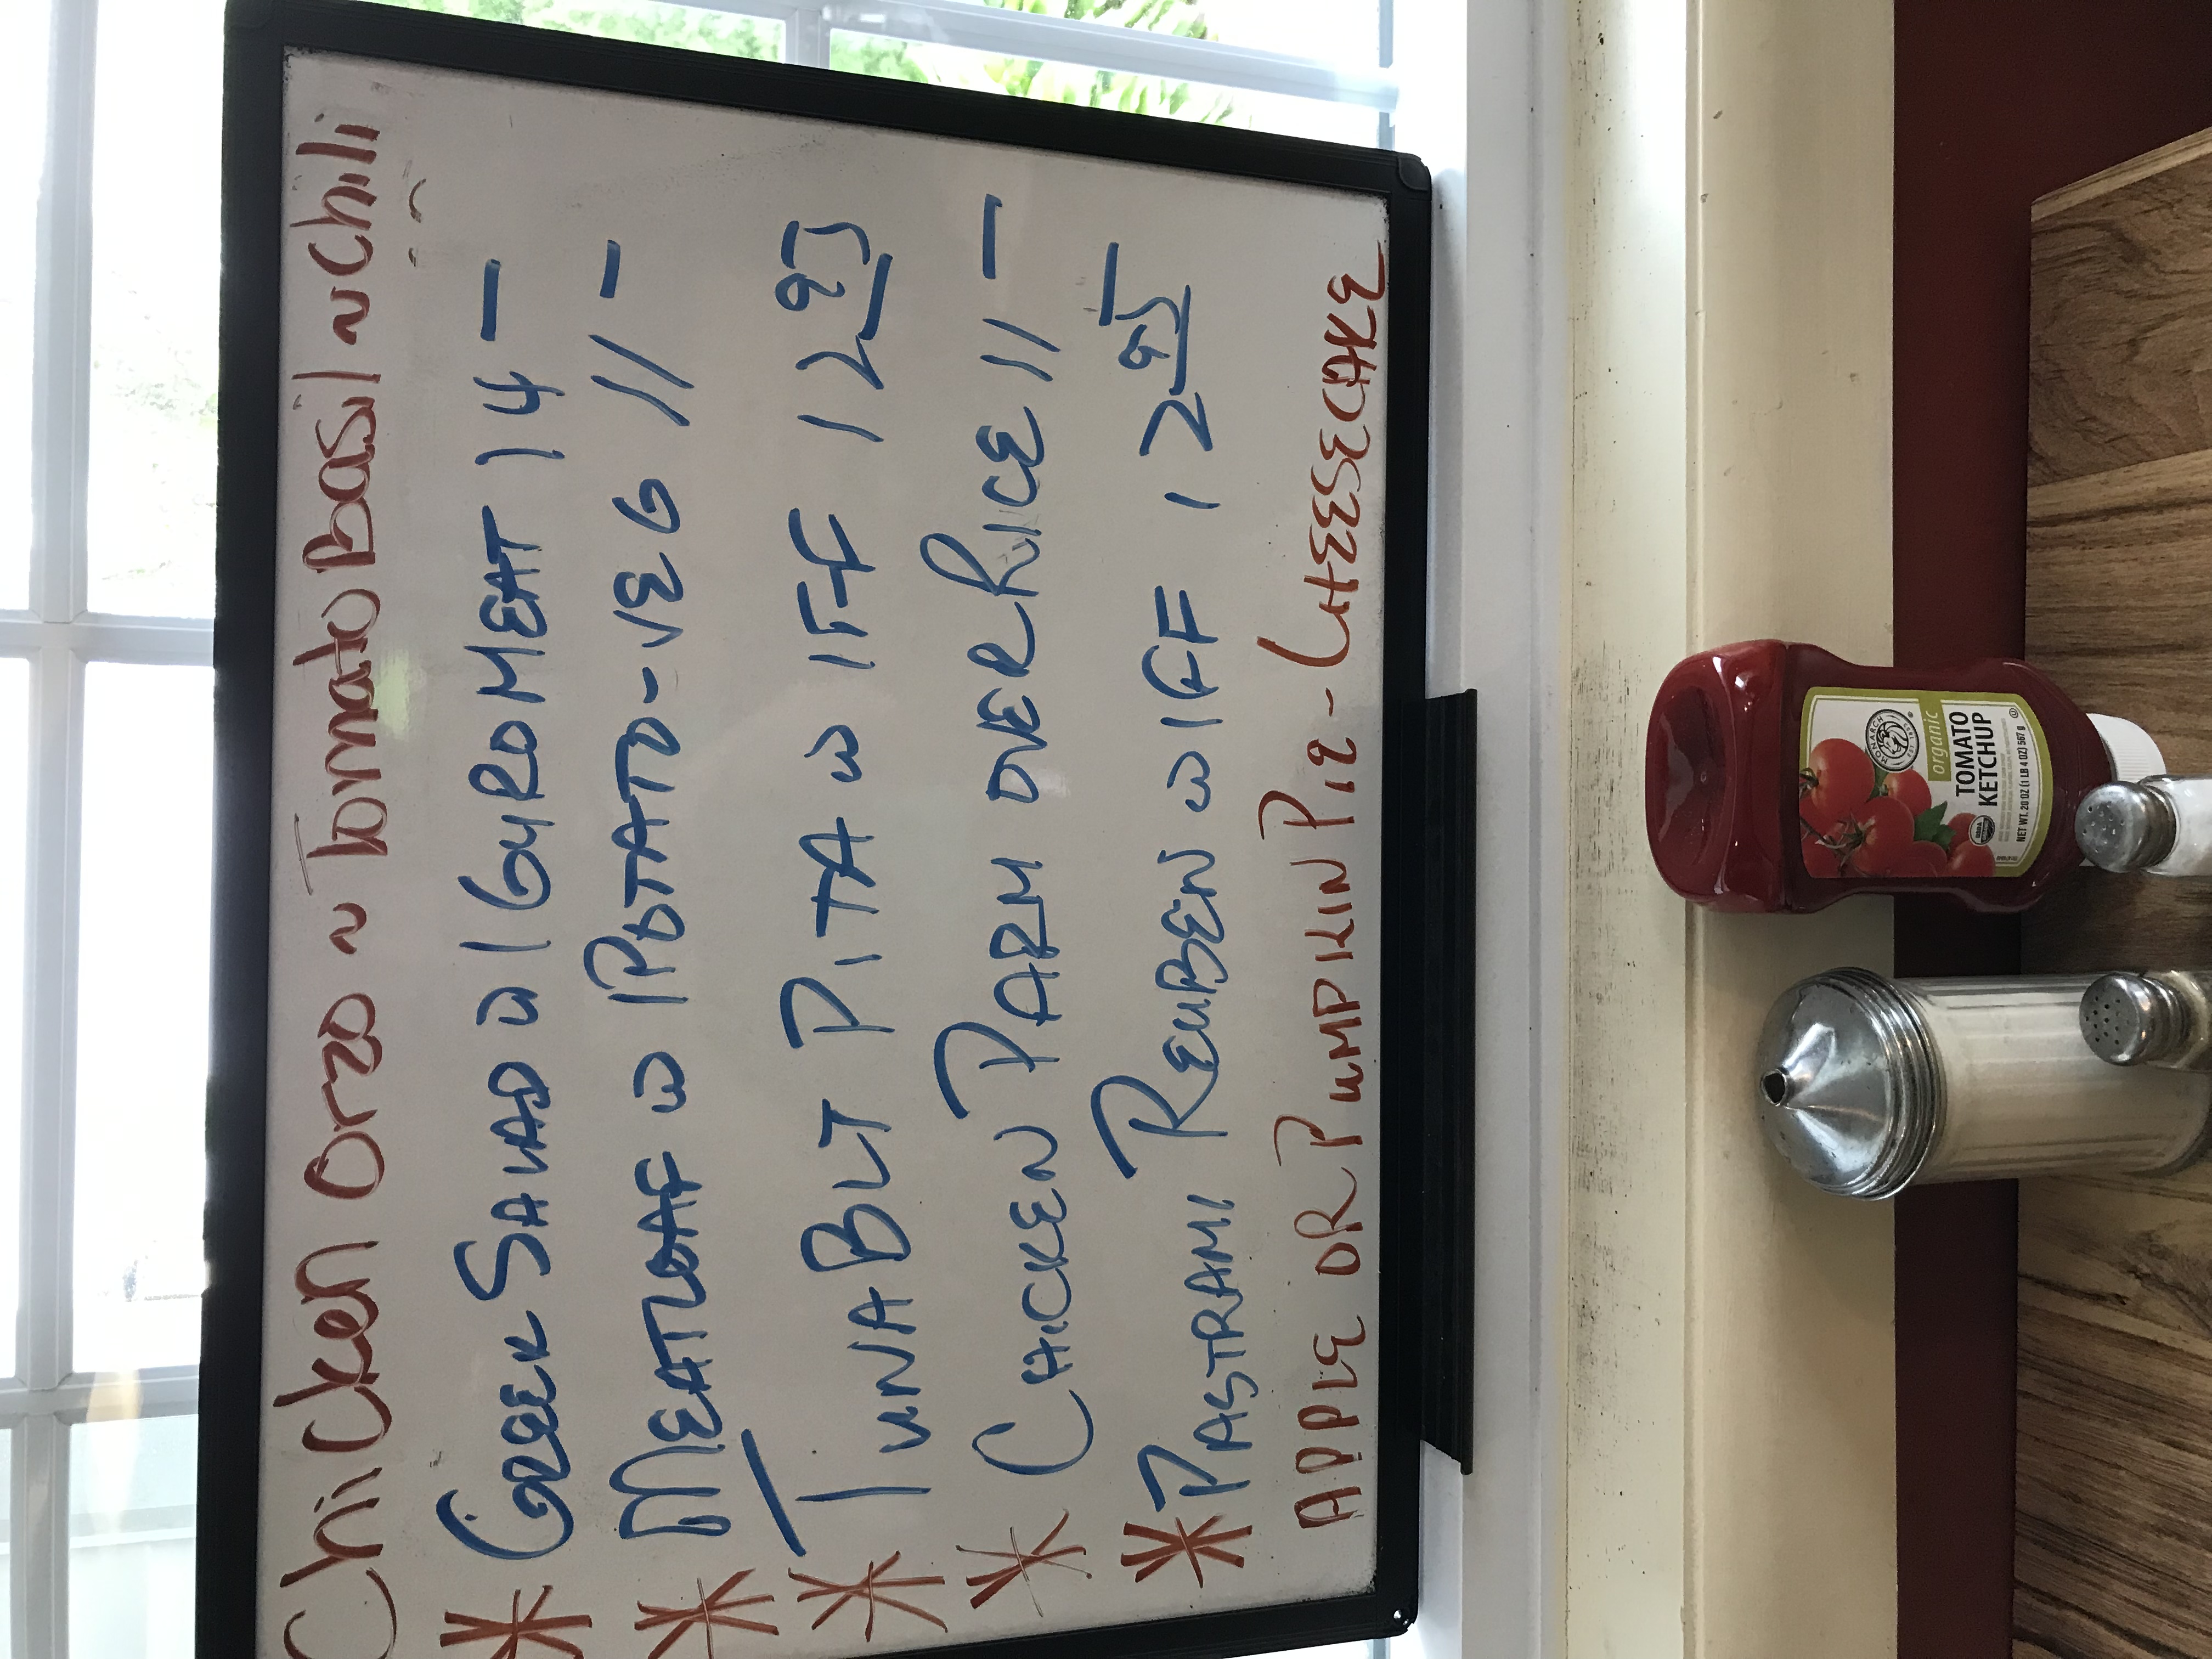 Chicken Orzo ~ Tomato Basil ~ Chili
* GREEK SALAD w/ GYRO MEAT 14 -
* MEATLOAF w/ POTATO - VEG 11 -
* TUNA BLT PITA w/ FF 12 95
* CHICKEN PARM OVER RICE 11 -
* PASTRAMI REUBEN w/ FF 12 95
APPLE OR PUMPKIN PIE - CHEESECAKE
MONARCH
organic
TOMATO
KETCHUP
NET WT. 20 OZ (1 LB 4 OZ) 567 g